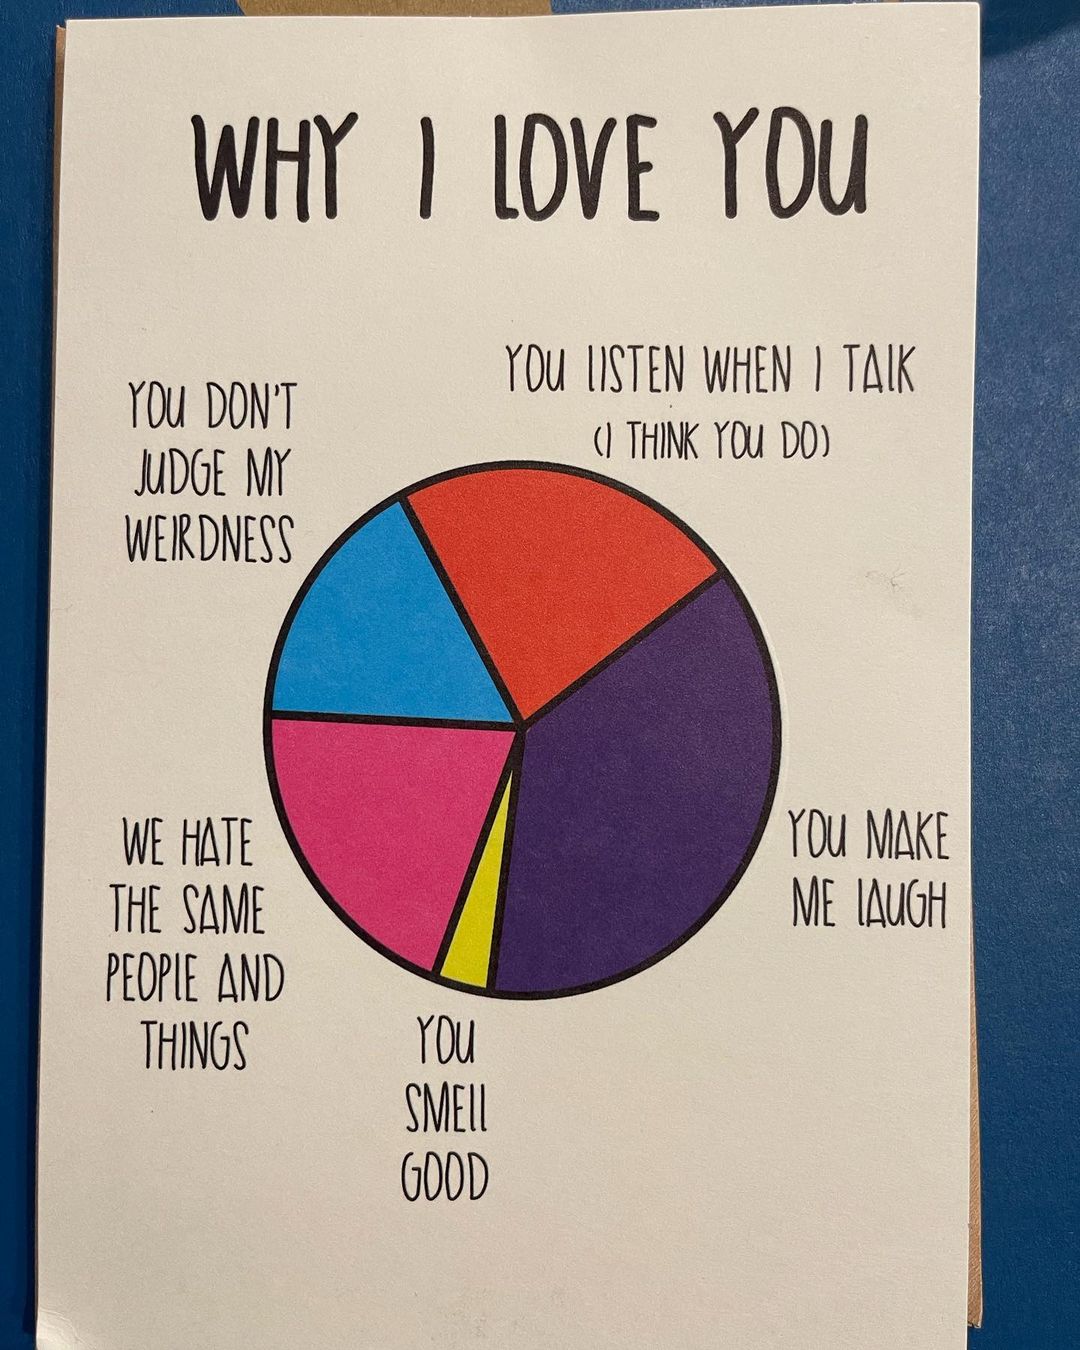 WHY I LOVE YOU
YOU LISTEN WHEN I TALK
(I THINK YOU DO)
YOU DON'T
JUDGE MY
WEIRDNESS
YOU MAKE
ME LAUGH
WE HATE
THE SAME
PEOPLE AND
THINGS
YOU
SMELL
GOOD